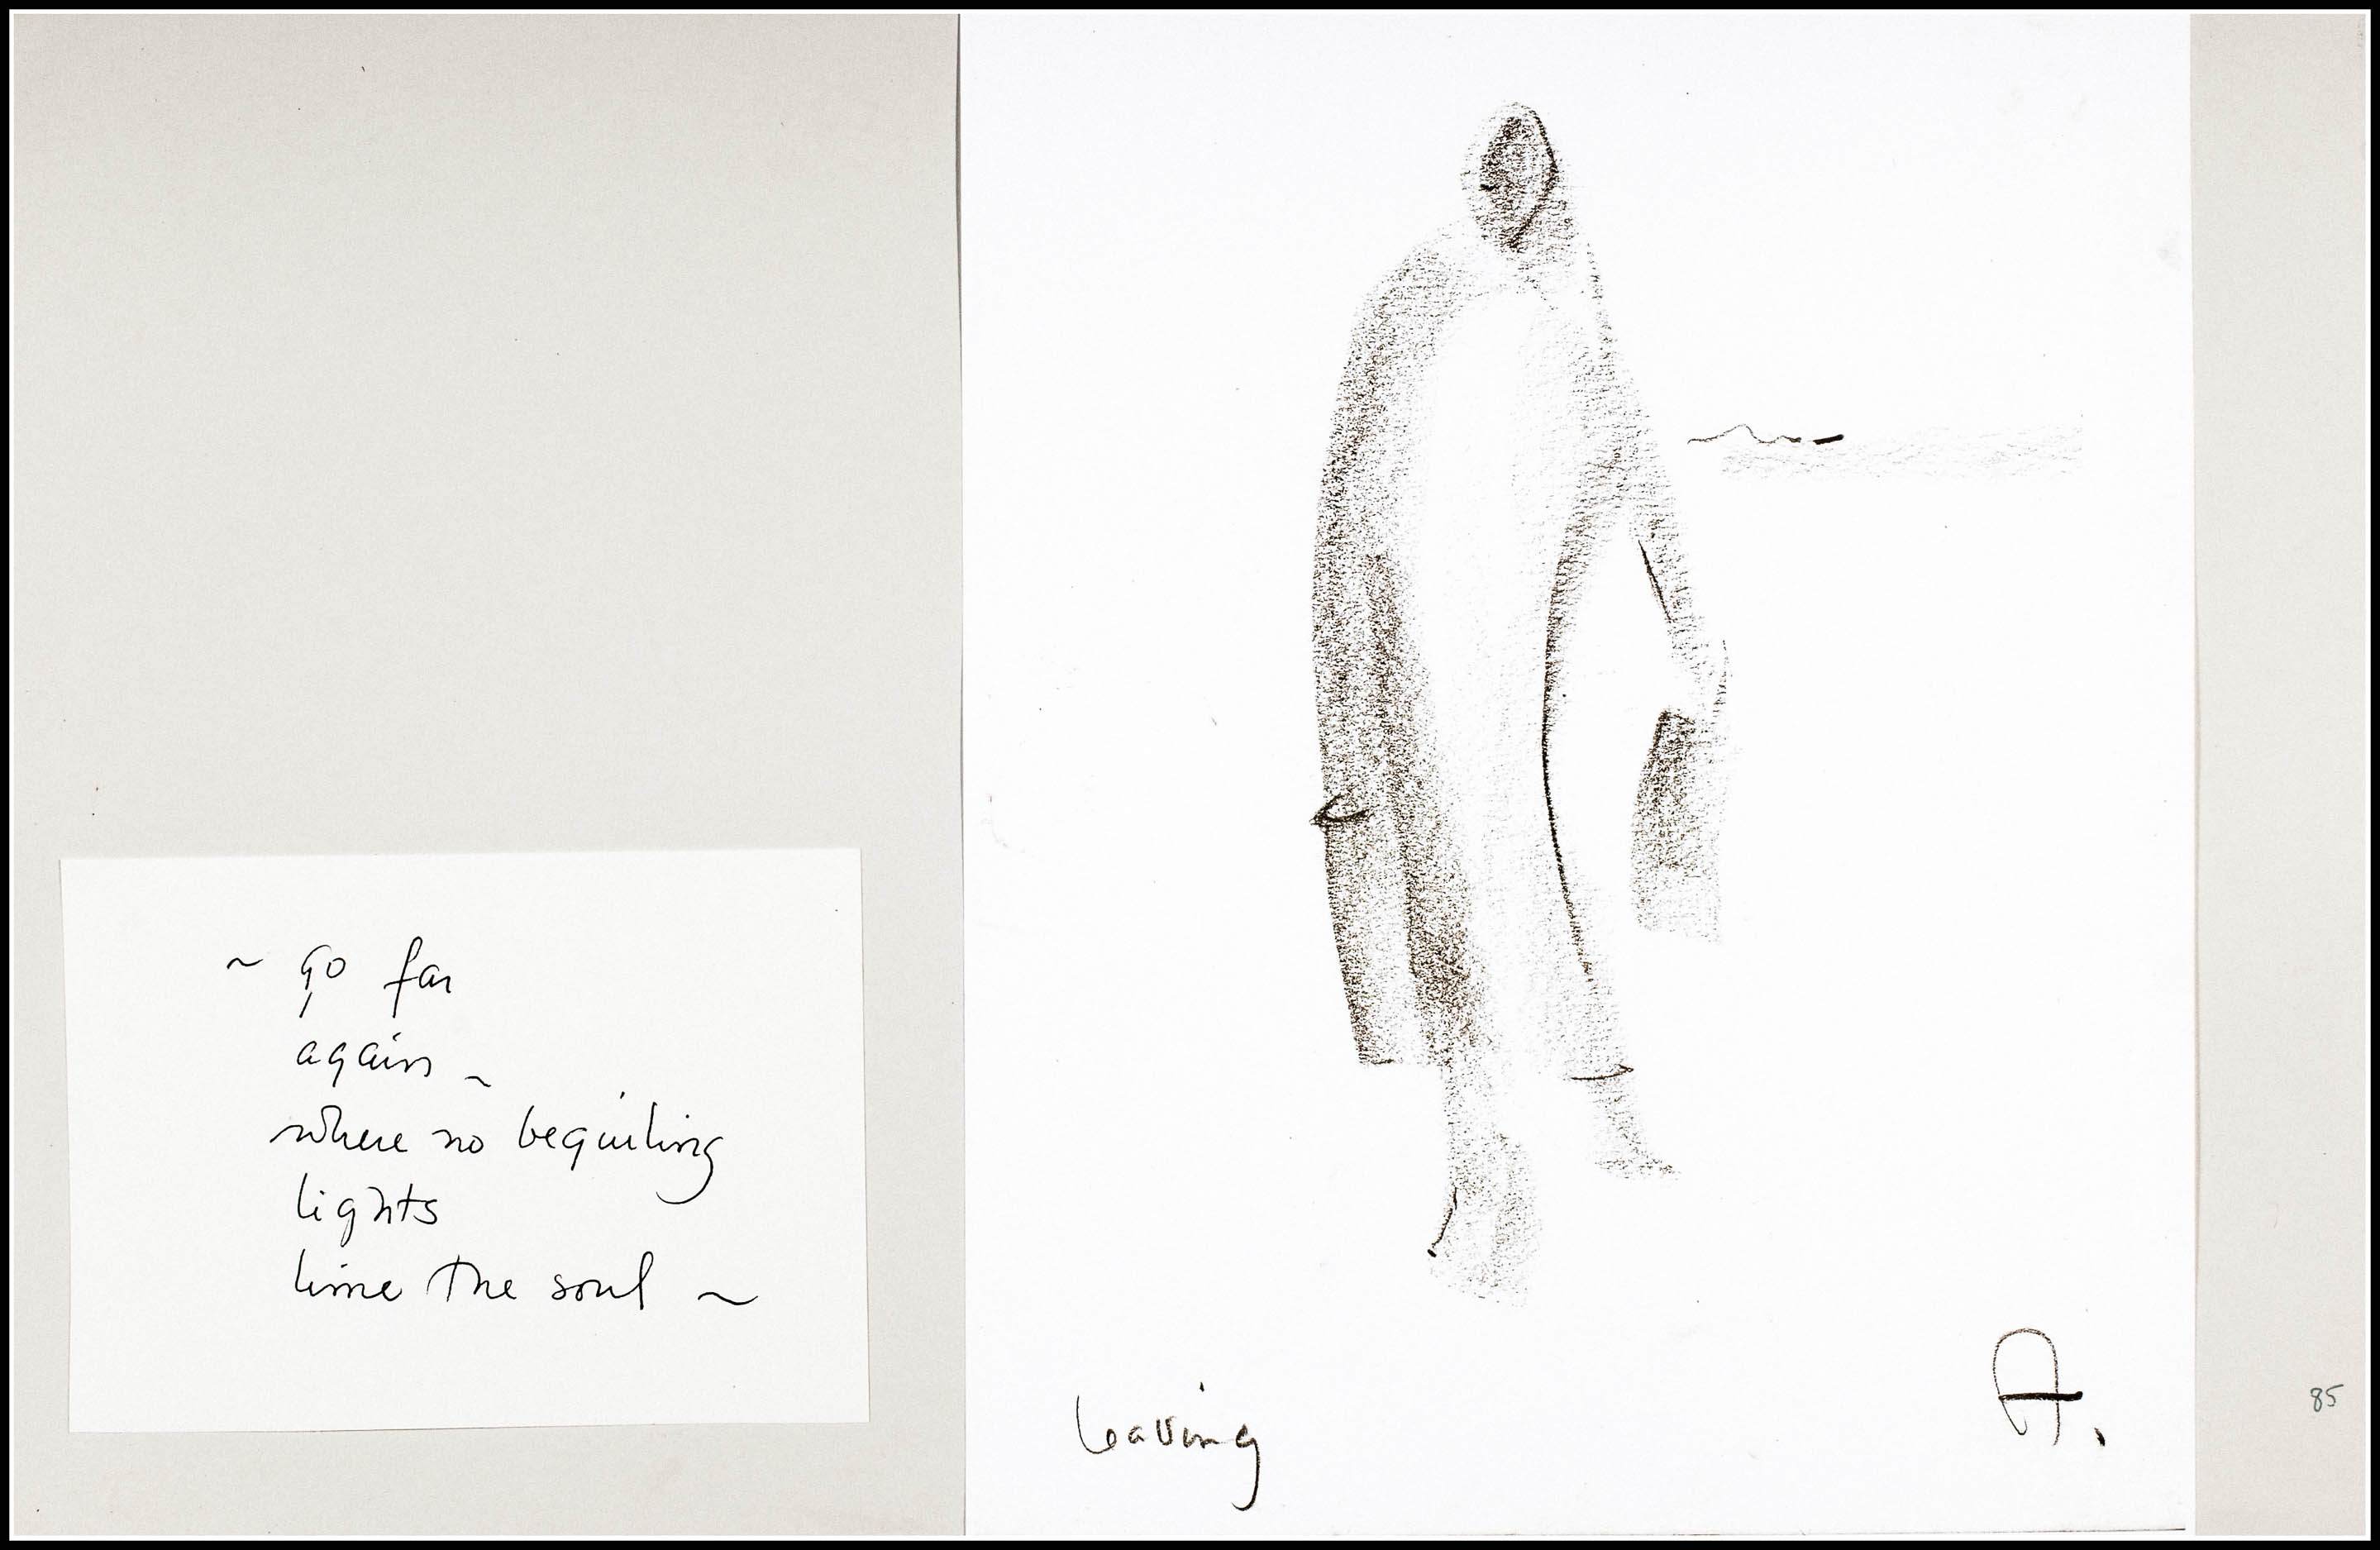 ~ go far
again ~
where no beguiling
lights
lime the soul ~
leaving
A.
85